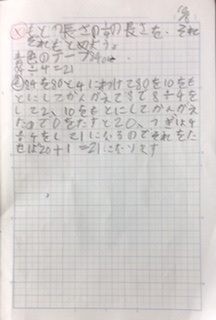 もとの長さの1/4の長さを、それ
それもとめよう。
赤色のテープ84cm
84÷4=21
84を80と4にわけて80を10をも
とにしてかんがえて8で8÷4を
して2、10をもとにしてかんがえ
たので0をたすと20、つぎは4
÷4をして1になるのでそれをた
せば20+1=21になります